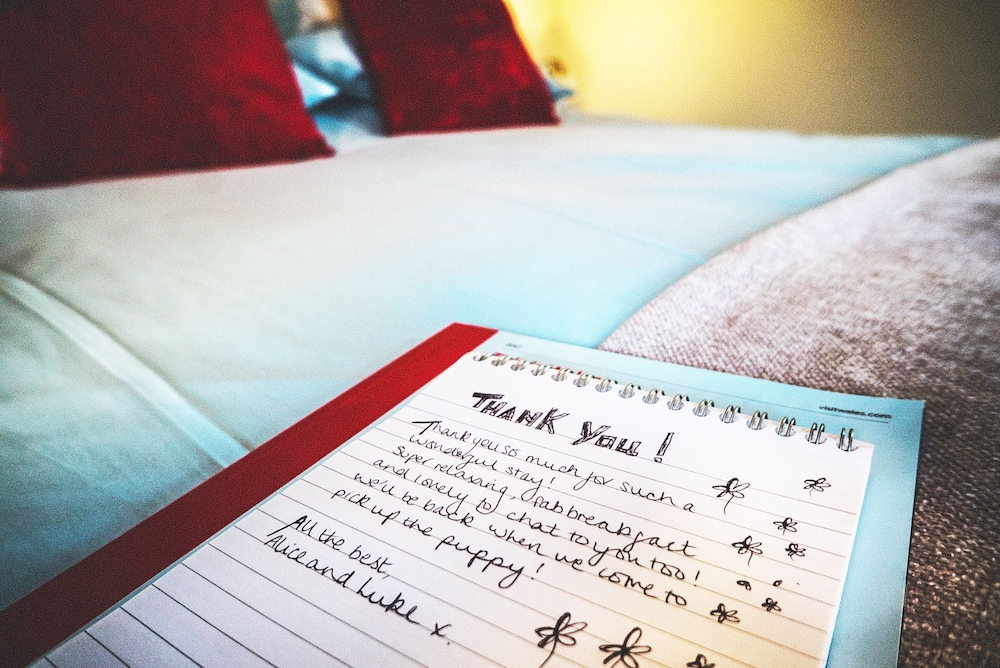 visitwales.com
THANK YOU!
Thank you so much for such a
wonderful stay!
Super relaxing, fab breakfast
and lovely to chat to you too!
we'll be back when we come to
pick up the puppy!
All the best,
Alice and Luke x.